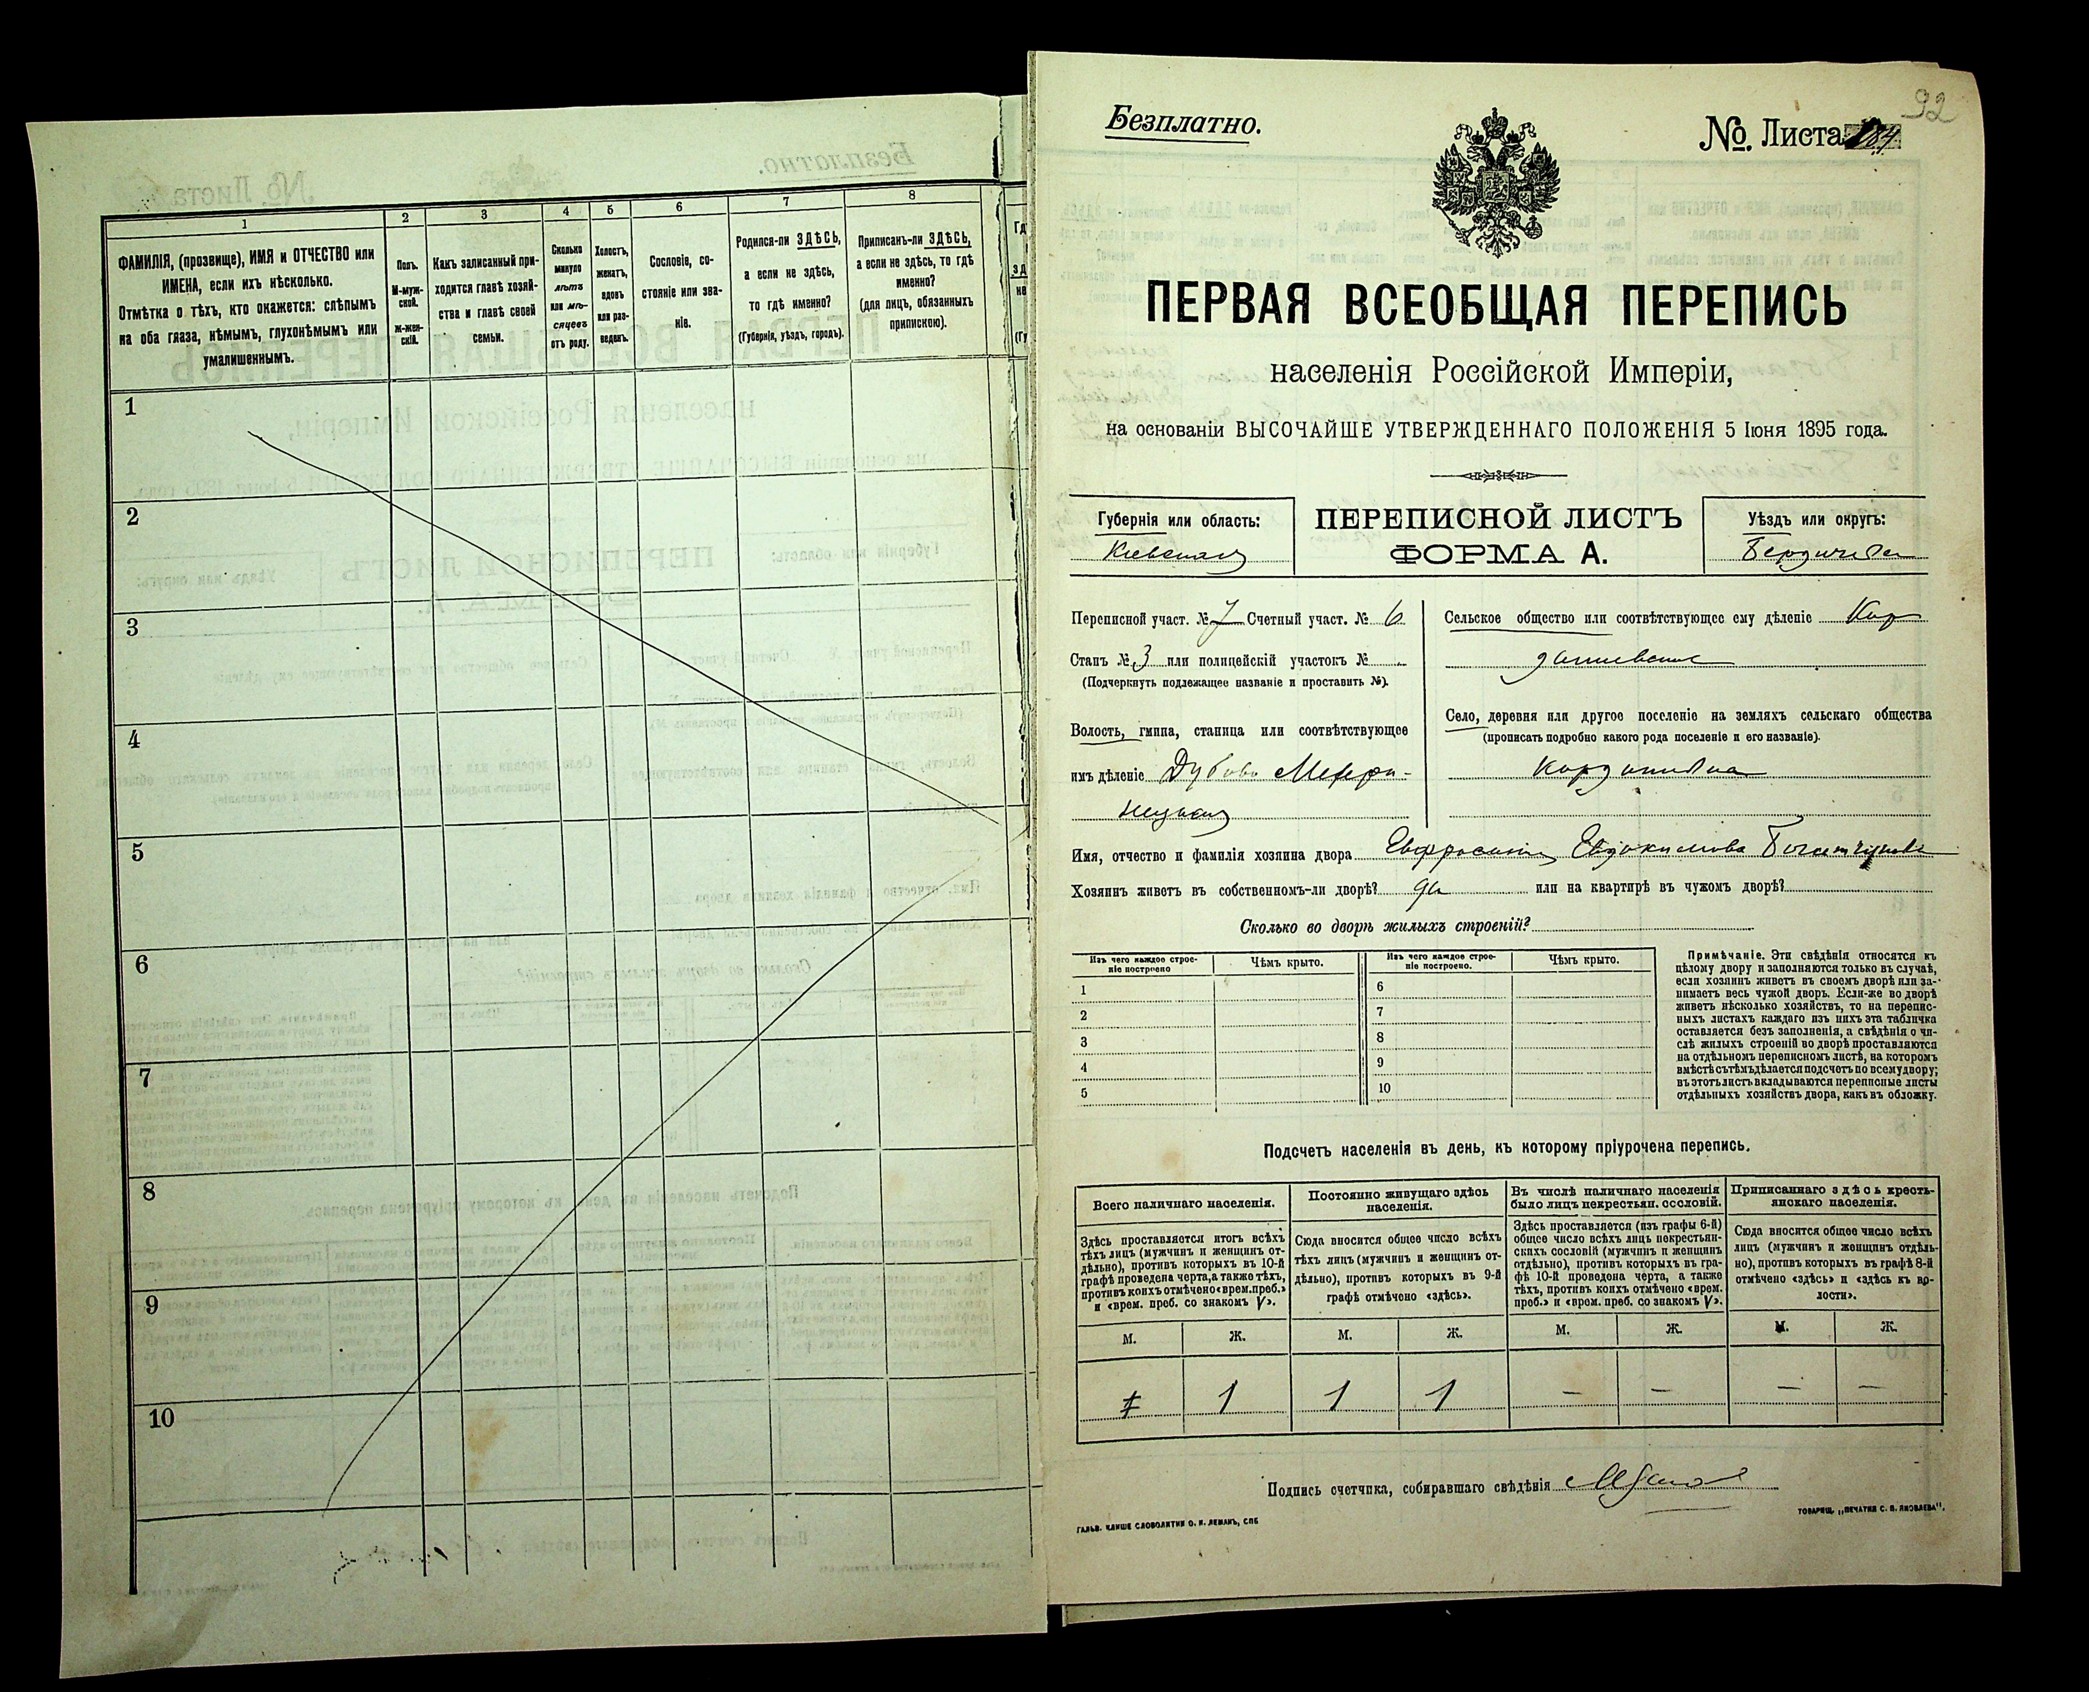 1
2
3
4
5
6
7
8
ФАМИЛІЯ, (прозвище), ИМЯ и ОТЧЕСТВО или
ИМЕНА, если ихъ нѣсколько.
Отмѣтка о тѣхъ, кто окажется: слѣпымъ
на оба глаза, нѣмымъ, глухонѣмымъ или
умалишеннымъ.
Полъ.
М-муж-
ской.
ж-жен-
скій.
Какъ записанный при-
ходится главѣ хозяй-
ства и главѣ своей
семьи.
Сколько
минуло
лѣтъ
или мѣ-
сяцевъ
отъ роду.
Холостъ,
женатъ,
вдовъ
или раз-
веденъ.
Сословіе, со-
стояніе или зва-
ніе.
Родился-ли ЗДѢСЬ,
а если не здѣсь,
то гдѣ именно?
(Губернія, уѣздъ, городъ).
Приписанъ-ли ЗДѢСЬ,
а если не здѣсь, то гдѣ
именно?
(для лицъ, обязанныхъ
припискою).
1
2
3
4
5
6
7
8
9
10
92
Безплатно.
№. Листа 184
ПЕРВАЯ ВСЕОБЩАЯ ПЕРЕПИСЬ
населенія Россійской Имперіи,
на основаніи ВЫСОЧАЙШЕ УТВЕРЖДЕННАГО ПОЛОЖЕНІЯ 5 Іюня 1895 года.
Губернія или область:
Кіевская
ПЕРЕПИСНОЙ ЛИСТЪ
ФОРМА А.
Уѣздъ или округъ:
Бердичев
Переписной участ. № 7 Счетный участ. № 6
Станъ № 3 или полицейскій участокъ №
(Подчеркнуть подлежащее названіе и проставить №).
Волость, гмина, станица или соотвѣтствующее
имъ дѣленіе Дубово Махри-
нецкая
Сельское общество или соотвѣтствующее ему дѣленіе Кор
дышевское
Село, деревня или другое поселеніе на земляхъ сельскаго общества
(прописать подробно какого рода поселеніе и его названіе).
Имя, отчество и фамилія хозяина двора Евфросинія Евдокимова
Хозяинъ живетъ въ собственномъ-ли дворѣ? да или на квартирѣ въ чужомъ дворѣ?
Сколько во дворѣ жилыхъ строеній?
Изъ чего каждое строе-
ніе построено
Чѣмъ крыто.
Изъ чего каждое строе-
ніе построено.
Чѣмъ крыто.
1
2
3
4
5
6
7
8
9
10
Примѣчаніе. Эти свѣдѣнія относятся къ
цѣлому двору и заполняются только въ случаѣ,
если хозяинъ живетъ въ своемъ дворѣ или за-
нимаетъ весь чужой дворъ. Если-же во дворѣ
живетъ нѣсколько хозяйствъ, то на перепис-
ныхъ листахъ каждаго изъ нихъ эта табличка
оставляется безъ заполненія, а свѣдѣнія о чи-
слѣ жилыхъ строеній во дворѣ проставляются
на отдѣльномъ переписномъ листѣ, на которомъ
вмѣстѣ съ тѣмъ дѣлается подсчетъ по всему двору;
въ этотъ листъ вкладываются переписные листы
отдѣльныхъ хозяйствъ двора, какъ въ обложку.
Подсчетъ населенія въ день, къ которому пріурочена перепись.
Всего наличнаго населенія.
Здѣсь проставляется итогъ всѣхъ
тѣхъ лицъ (мужчинъ и женщинъ от-
дѣльно), противъ которыхъ въ 10-й
графѣ проведена черта, а также тѣхъ,
противъ коихъ отмѣчено «врем. преб.»
и «врем. преб. со знакомъ V».
Постоянно живущаго здѣсь
населенія.
Сюда вносится общее число всѣхъ
тѣхъ лицъ (мужчинъ и женщинъ от-
дѣльно), противъ которыхъ въ 9-й
графѣ отмѣчено «здѣсь».
Въ числѣ наличнаго населенія
было лицъ некрестьян. сословій.
Здѣсь проставляется (изъ графы 6-й)
общее число всѣхъ лицъ некрестьян-
скихъ сословій (мужчинъ и женщинъ
отдѣльно), противъ которыхъ въ гра-
фѣ 10-й проведена черта, а также
тѣхъ, противъ коихъ отмѣчено «врем.
преб.» и «врем. преб. со знакомъ V».
Приписаннаго здѣсь кресть-
янскаго населенія.
Сюда вносится общее число всѣхъ
лицъ (мужчинъ и женщинъ отдѣль-
но), противъ которыхъ въ графѣ 8-й
отмѣчено «здѣсь» и «здѣсь къ во-
лости».
М. Ж. М. Ж. М. Ж. М. Ж.
1 1 1 1 — — — —
Подпись счетчика, собиравшаго свѣдѣнія
ГАЛЬВ. КЛИШЕ СЛОВОЛИТНИ О. И. ЛЕМАНЪ, СПБ
ТОВАРИЩ. „ПЕЧАТНЯ С. П. ЯКОВЛЕВА“.